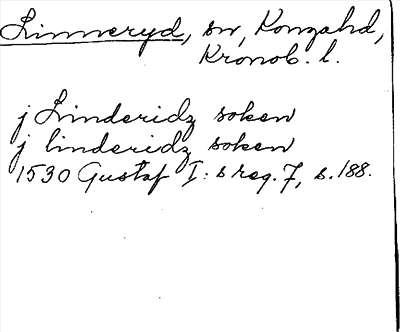 Linneryd, sn, Konga hd,
Kronob. l.
j Linderidz soken
j linderidz soken
1530 Gustaf I:s reg. 7, s. 188.